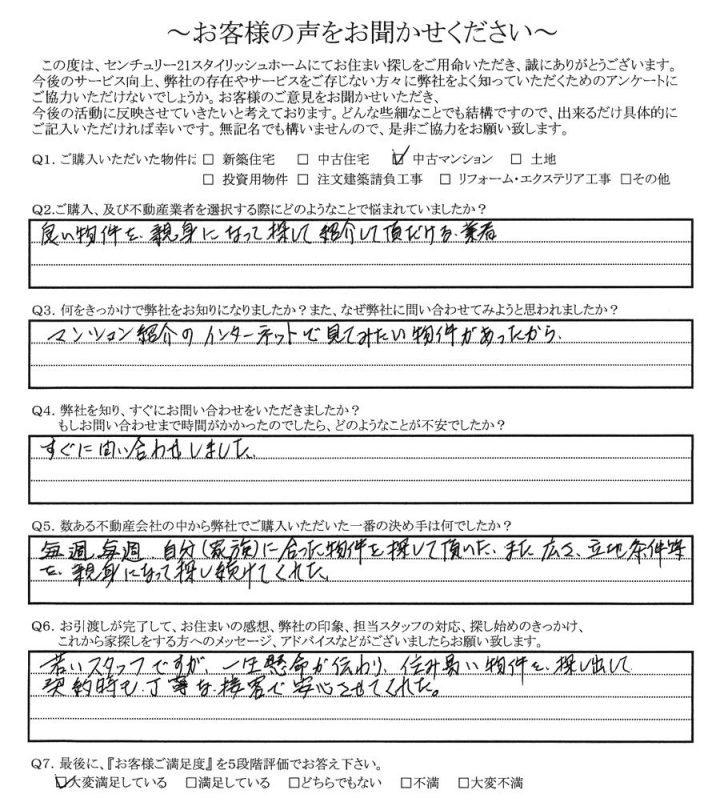 ～お客様の声をお聞かせください～
この度は、センチュリー21スタイリッシュホームにてお住まい探しをご用命いただき、誠にありがとうございます。
今後のサービス向上、弊社の存在やサービスをご存じない方々に弊社をよく知っていただくためのアンケートに
ご協力いただけないでしょうか。お客様のご意見をお聞かせいただき、
今後の活動に反映させていきたいと考えております。どんな些細なことでも結構ですので、出来るだけ具体的に
ご記入いただければ幸いです。無記名でも構いませんので、是非ご協力をお願い致します。
Q1. ご購入いただいた物件は □ 新築住宅 □ 中古住宅 ☑ 中古マンション □ 土地
□ 投資用物件 □ 注文建築請負工事 □ リフォーム・エクステリア工事 □その他
Q2.ご購入、及び不動産業者を選択する際にどのようなことで悩まれていましたか？
良い物件を、親身になって探して紹介して頂だける業者
Q3. 何をきっかけで弊社をお知りになりましたか？また、なぜ弊社に問い合わせてみようと思われましたか？
マンション紹介のインターネットで見てみたい物件があったから、
Q4. 弊社を知り、すぐにお問い合わせをいただきましたか？
もしお問い合わせまで時間がかかったのでしたら、どのようなことが不安でしたか？
すぐに問い合わせしました。
Q5. 数ある不動産会社の中から弊社でご購入いただいた一番の決め手は何でしたか？
毎週毎週 自分(家族)に合った物件を探して頂いた、また 広さ、立地条件等
を、親身になって探し続けてくれた。
Q6. お引渡しが完了して、お住まいの感想、弊社の印象、担当スタッフの対応、探し始めのきっかけ、
これから家探しをする方へのメッセージ、アドバイスなどがございましたらお願い致します。
若いスタッフですが、一生懸命が伝わり、住み易い物件を、探し出して
契約時も、丁寧な接客で安心させてくれた。
Q7. 最後に、『お客様ご満足度』を5段階評価でお答え下さい。
☑大変満足している □満足している □どちらでもない □不満 □大変不満